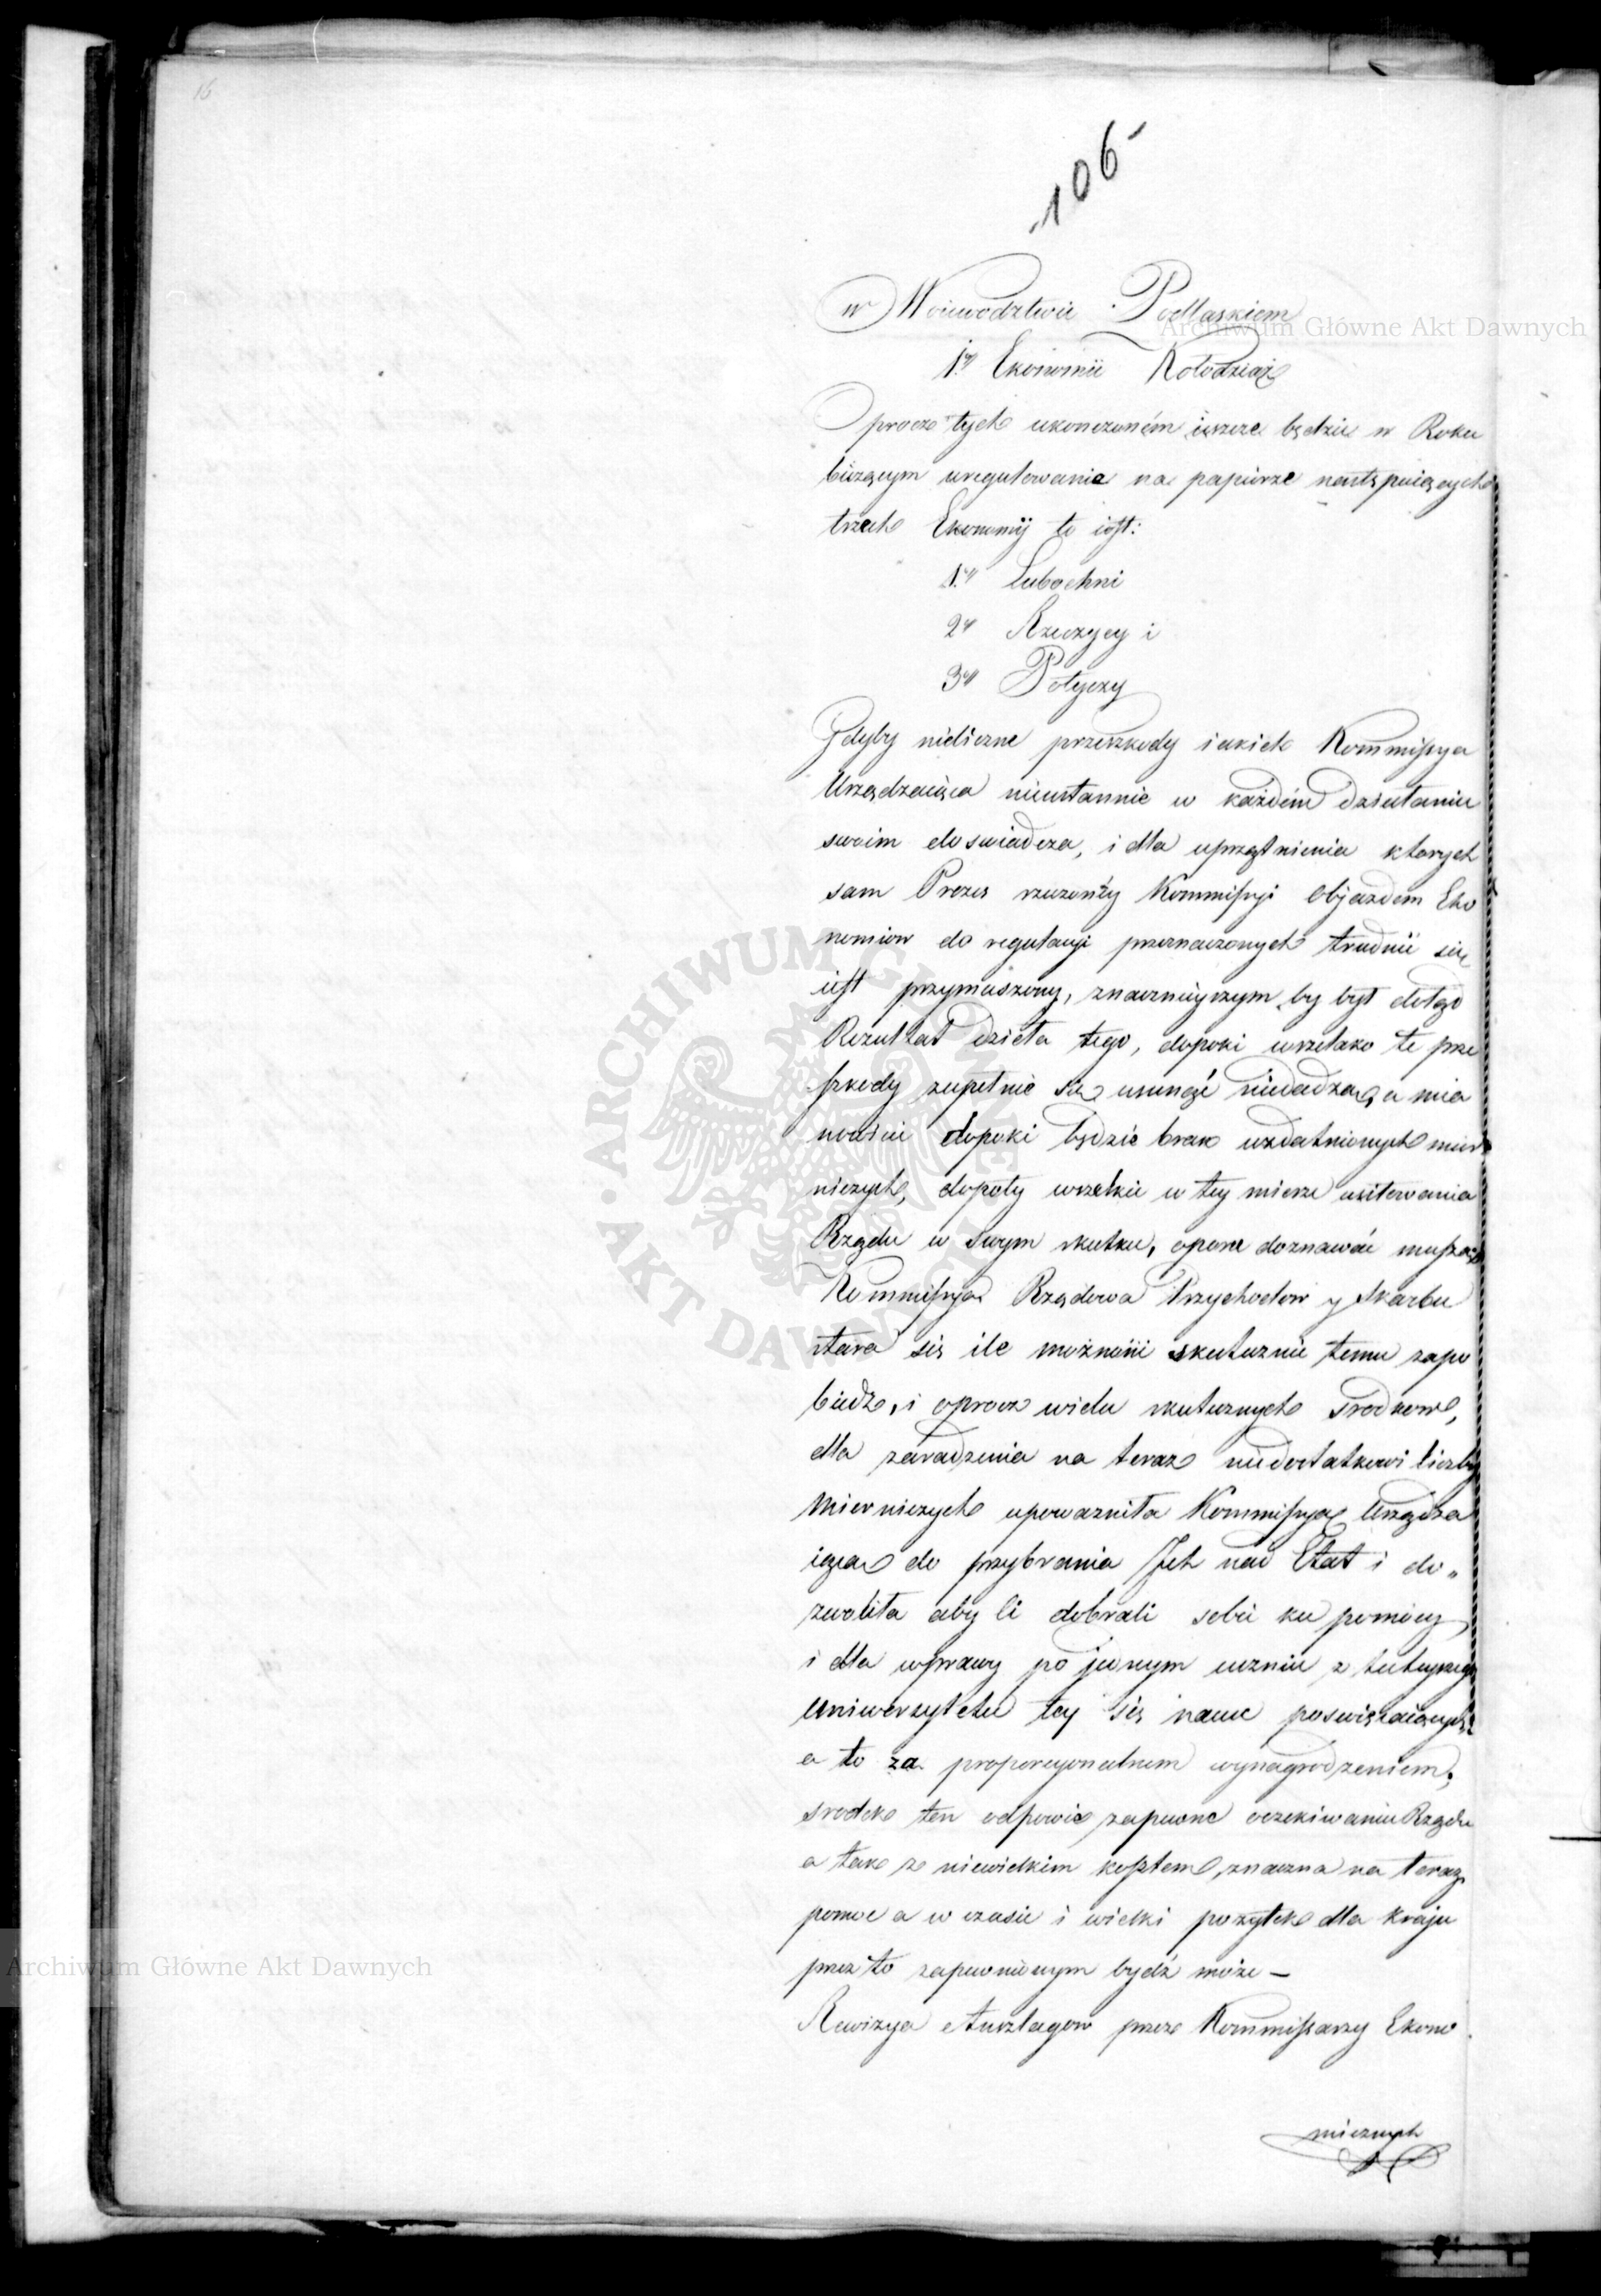 16
106
w Woiewodztwie Podlaskiem
1° Ekonomii Kołodziąż
Oprocz tych ukonczoném ieszcze będzie w Roku
bieżącym uregulowanie na papierze następuiących
trzech Ekonomij to iest:
1° Lubochni
2° Rzeczycy i
3° Potyczy
Gdyby nieliczne przeszkody iakich Kommissya
Urządzaiąca nieustannie w każdém działaniu
swoim doswiadcza, i dla uprzątnienia ktorych
sam Prezes rzeczonéy Kommissyi Objazdem Eko
nomiow do regulacyi przeznaczonych trudnić się
iest przymuszony, znacznieyszym by był dotąd
Rezultat dzieła tego, dopoki wszelako te prze
szkody zupełnie się usunąć niedadzą, a mia
nowicie dopoki będzie brak uzdatnionych mier
niczych, dopoty wszelkie w tey mierze usiłowania
Rządu w swym skutku, oporu doznawać muszą
Kommissya Rządowa Przychodow y Skarbu
stara się ile możności skutecznie temu zapo
biedz, i oprocz wielu skutecznych srodkow,
dla zaradzenia na teraz niedostatkowi liczby
Mierniczych upoważniła Kommissyą Urządza
iącą do przybrania Ich nad Etat i do„
zwoliła aby Ci dobrali sobie ku pomocy,
i dla wprawy po jednym uczniu z tuteyszego
Uniwersytetu tey się nauce poswięcaiących
a to za proporcyonalnem wynagrodzeniem,
srodek ten odpowie zapewne oczekiwaniu Rządu
a tak z niewielkim kosztem, znaczna na teraz
pomoc a w czasie i wielki pożytek dla Kraju
przez to zapewnionym bydź może —
Rewizya Anszlagow przez Kommissarzy Ekono
micznych
Archiwum Główne Akt Dawnych
Archiwum Główne Akt Dawnych
ARCHIWUM GŁÓWNE AKT DAWNYCH